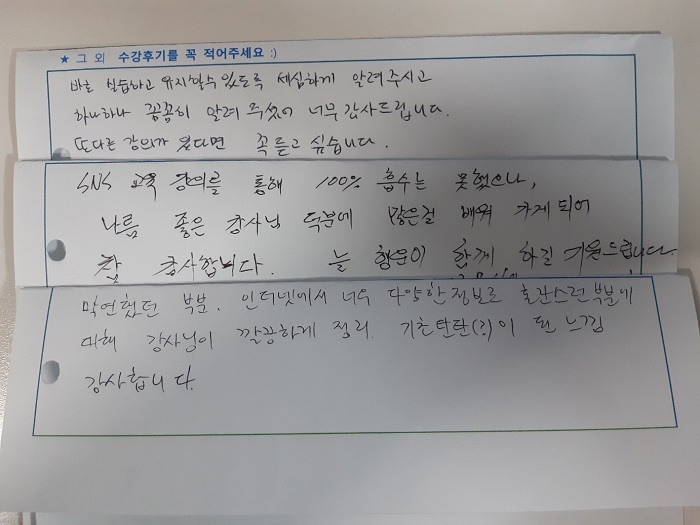 ★ 그 외 수강후기를 꼭 적어주세요 :)
바로 실습하고 유지할수 있도록 세심하게 알려주시고
하나하나 꼼꼼히 알려 주셨어 너무 감사드립니다.
또다른 강의가 있다면 꼭듣고 싶습니다.
SNS 교육 강의를 통해 100% 흡수는 못했으나,
나름 좋은 강사님 덕분에 많은걸 배워 가게 되어
참 감사합니다. 늘 행운이 함께 하길 기원드립니다.
막연했던 부분. 인터넷에서 너무 다양한 정보로 혼란스런 부분에
대해 강사님이 깔끔하게 정리. 기초탄탄(?)이 된 느낌
감사합니다.